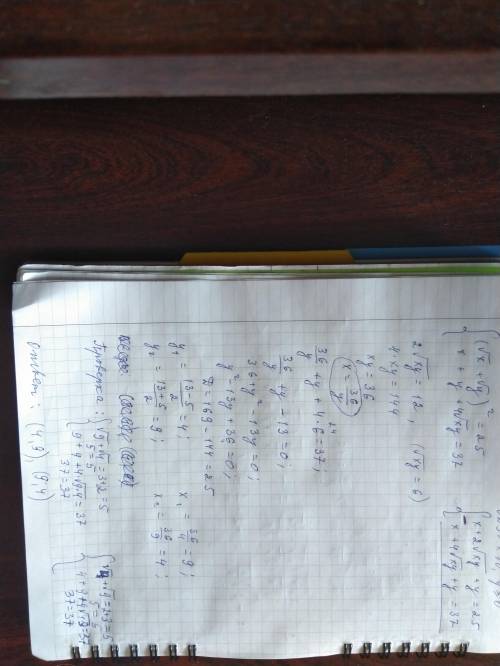 {(√x + √y)² = 25
x + y + 4√xy = 37
{x + 2√xy + y = 25
x + 4√xy + y = 37
2√xy = 12, (√xy = 6)
4·xy = 144
xy = 36
x = 36/y
36/y + y + 4·6 = 37;
24
36/y + y - 13 = 0;
36 + y² - 13y = 0;
y² - 13y + 36 = 0;
D = 169 - 144 = 25
y₁ = (13-5)/2 = 4; x₁ = 36/4 = 9;
y₂ = (13+5)/2 = 9; x₂ = 36/9 = 4;
Проверка: {√9 + √4 = 3+2 = 5
5 = 5
9 + 4 + 4√9·4 = 37
37 = 37
{√4 + √9 = 2+3 = 5
5 = 5
4 + 9 + 4√4·9 = 37
37 = 37
Ответ: (4; 9); (9; 4)